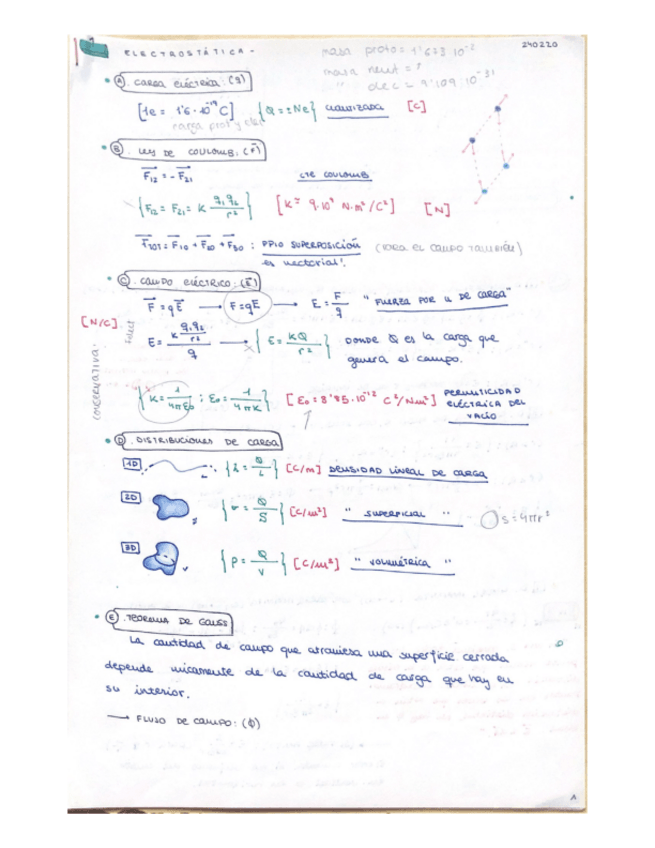 1 ELECTROSTÁTICA - 240220
masa proto = 1'673·10⁻²
masa neut = ?
" elec = 9'109·10⁻³¹
Ⓐ. CARGA ELÉCTRICA: (q)
[1e = 1'6·10⁻¹⁹ C] {Q = ±Ne} CUANTIZADA [C]
carga prot y elec
Ⓑ. LEY DE COULOMB: (F⃗)
F₁₂ = -F₂₁ CTE COULOMB
{F₁₂ = F₂₁ = K q₁q₂/r²} [K ≃ 9·10⁹ N·m²/C²] [N]
= F₁₀ + F₂₀ + F₃₀ : PPIO SUPERPOSICIÓN (PARA EL CAMPO TAMBIÉN)
es vectorial!
Ⓒ. CAMPO ELÉCTRICO: (E⃗)
F⃗ = qE⃗ → F = qE → E = F/q "FUERZA POR u DE CARGA"
[N/C]
Felect
conservativa.
E = (K q₁q₂/r²)/q → {E = KQ/r²} DONDE Q es la carga que
genera el campo.
{K = 1/4πε₀ ; ε₀ = 1/4πK} [ε₀ = 8'85·10⁻¹² C²/Nm²] PERMITIVIDAD
ELÉCTRICA DEL
VACÍO
Ⓓ. DISTRIBUCIONES DE CARGA
1D L {λ = Q/L} [C/m] DENSIDAD LINEAL DE CARGA
2D S {σ = Q/S} [C/m²] " SUPERFICIAL " S = 4πr²
3D V {ρ = Q/V} [C/m³] " VOLUMÉTRICA "
Ⓔ. TEOREMA DE GAUSS
La cantidad de campo que atraviesa una superficie cerrada
depende únicamente de la cantidad de carga que hay en
su interior.
→ FLUJO DE CAMPO: (ϕ)
A